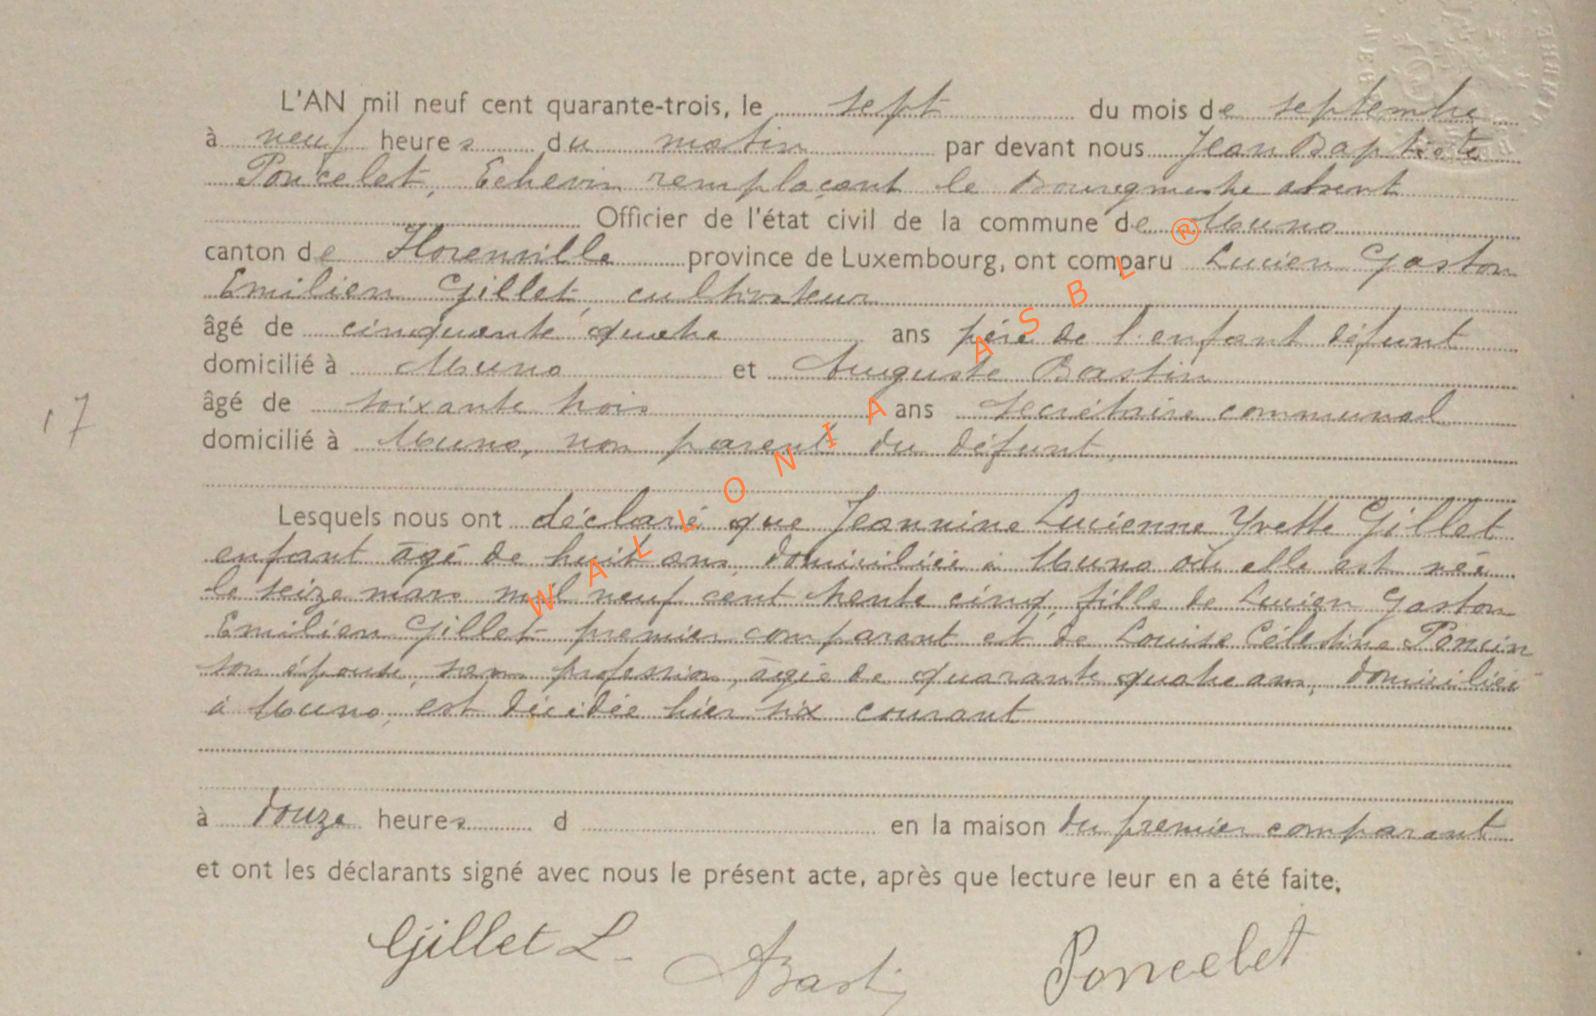 L'AN mil neuf cent quarante-trois, le sept du mois de septembre
à neuf heures du matin par devant nous Jean Baptiste
Poncelet, Echevin remplaçant le Bourgmestre absent
Officier de l'état civil de la commune de Muno
canton de Florenville province de Luxembourg, ont comparu Lucien Gaston
Emilien Gillet, cultivateur
âgé de cinquante quatre ans père de l'enfant défunt
domicilié à Muno et Auguste Bastin
âgé de soixante trois ans secrétaire communal
domicilié à Muno, non parent du défunt,
17
Lesquels nous ont déclaré que Jeannine Lucienne Yvette Gillet
enfant âgé de huit ans, domiciliée à Muno où elle est née
le seize mars mil neuf cent trente cinq, fille de Lucien Gaston
Emilien Gillet premier comparant et de Louise Célestine Poncin
son épouse, sans profession, âgée de quarante quatre ans, domiciliée
à Muno, est décédée hier six courant
à douze heures d en la maison du premier comparant
et ont les déclarants signé avec nous le présent acte, après que lecture leur en a été faite.
Gillet L. ABastin Poncelet
WALLONIA ASBL ®